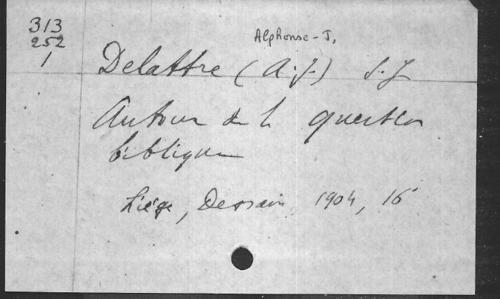 313
252
1
Alphonse-J,
Delattre (A.J.) S.J
Autour de la question
biblique
Liége, Dessain, 1904, 16°